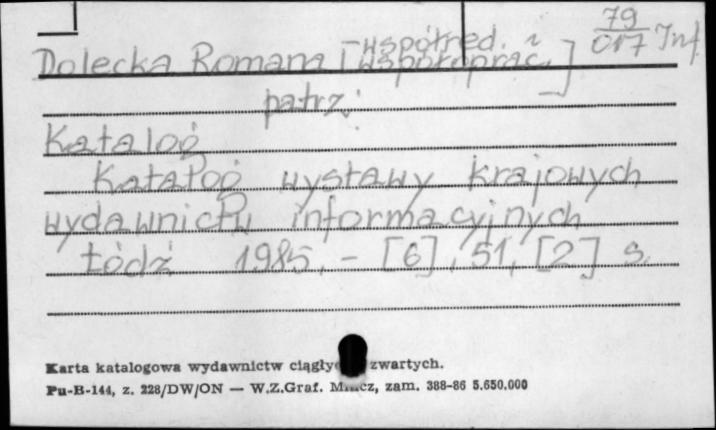 79
017 Inf.
współred. i
Dolecka Romana [współoprac.]
patrz:
Katalog
Katalog wystawy krajowych
wydawnictw informacyjnych
Łódź 1985. - [6], 51, [2] s.
Karta katalogowa wydawnictw ciągłyc zwartych.
Pu-B-144, z. 228/DW/ON — W.Z.Graf. M cz, zam. 388-86 5.650.000